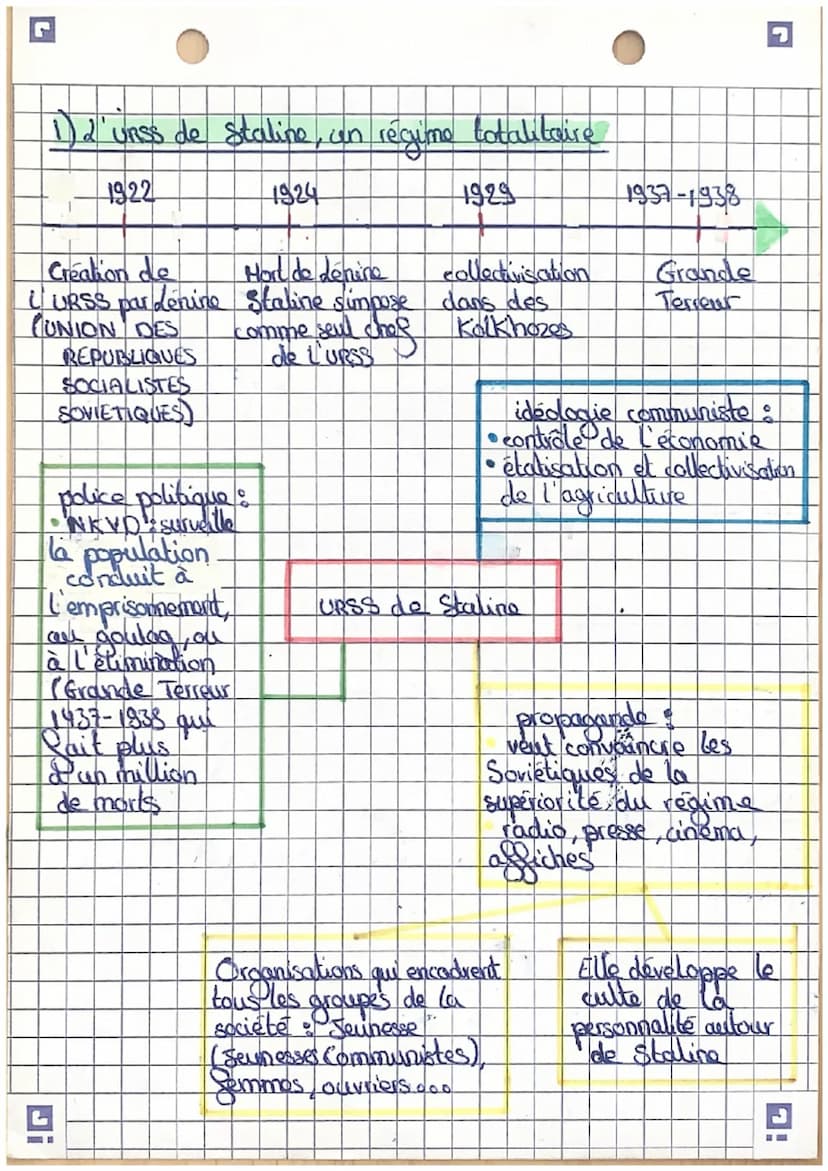 1) L'URSS de Staline, un régime totalitaire
1922 1924 1929 1937-1938
Création de
L'URSS par Lénine
(UNION DES
REPUBLIQUES
SOCIALISTES
SOVIETIQUES)
Mort de Lénine
Staline s'impose
comme seul chef
de L'URSS
collectivisation
dans des
Kolkhozes
Grande
Terreur
idéologie communiste :
• contrôle de l'économie
• étatisation et collectivisation
de l'agriculture
police politique :
• NKVD : surveille
la population
conduit à
l'emprisonnement,
au goulag, ou
à l'élimination
(Grande Terreur
1937-1938 qui
fait plus
d'un million
de morts
URSS de Staline
propagande :
• veut convaincre les
Soviétiques de la
supériorité du régime
• radio, presse, cinéma,
affiches
Organisations qui encadrent
tous les groupes de la
société : "Jeunesse"
(Jeunesses Communistes),
femmes, ouvriers...
Elle développe le
culte de la
personnalité autour
de Staline